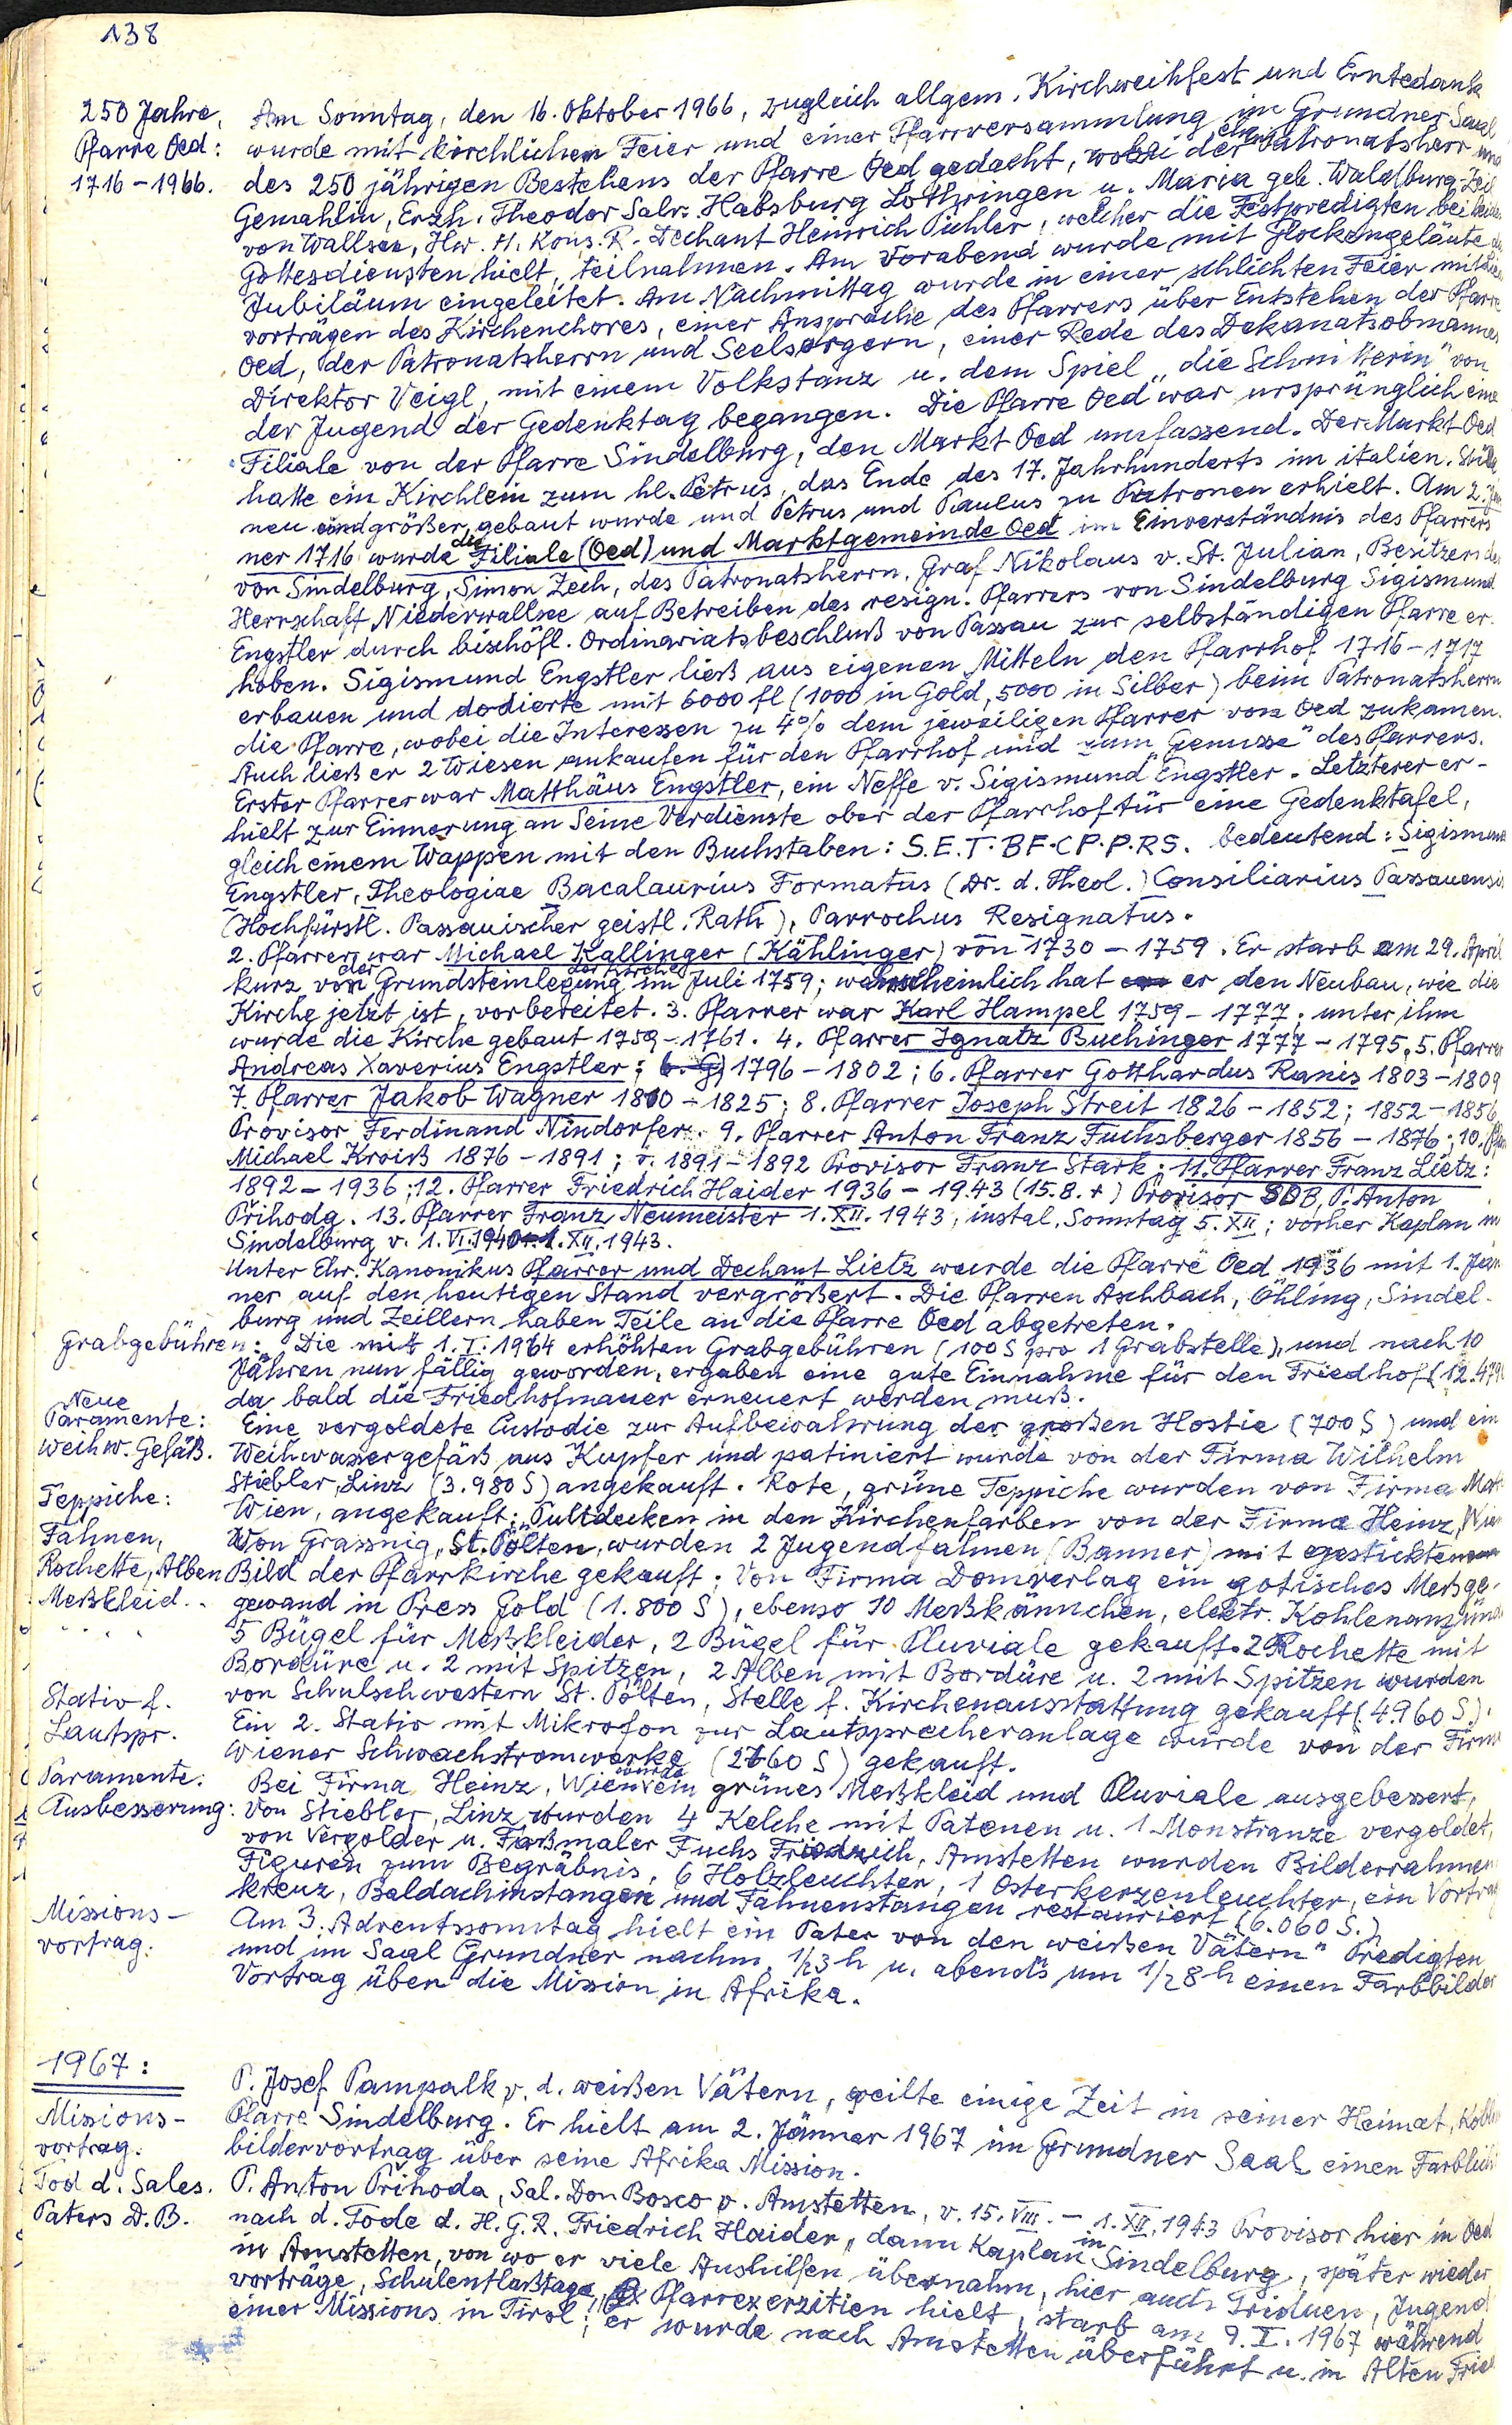 138
250 Jahre,
Pfarre Oed:
1716-1966.
Am Sonntag, den 16. Oktober 1966, zugleich allgem. Kirchweihfest und Erntedank
wurde mit kirchlichen Feier und einer Pfarrversammlung im Grundner Saal
des 250 jährigen Bestehens der Pfarre Oed gedacht, wobei der Patronatsherr und
Gemahlin, Erzh. Theodor Salv. Habsburg Lothringen u. Maria geb. Waldburg-Zeil
von Wallsee, Hw. H. Kons. R. Dechant Heinrich Pichler, welcher die Festpredigten bei
Gottesdiensten hielt, teilnahmen. Am Vorabend wurde mit Glockengeläute
Jubiläum eingeleitet. Am Nachmittag wurde in einer schlichten Feier mit
vorträgen des Kirchenchores, einer Ansprache des Pfarrers über Entstehen der Pfarre
Oed, der Patronatsherrn und Seelsorgern, einer Rede des Dekanatsobmannes
Direktor Veigl, mit einem Volkstanz u. dem Spiel „die Schnitterin" von
der Jugend der Gedenktag begangen. Die Pfarre Oed war ursprünglich eine
Filiale von der Pfarre Sindelburg, den Markt Oed umfassend. Der Markt Oed
hatte ein Kirchlein zum hl. Petrus, das Ende des 17. Jahrhunderts im italien.
neu und größer gebaut wurde und Petrus und Paulus zu Patronen erhielt. Am 2.
ner 1716 wurde die Filiale (Oed) und Marktgemeinde Oed im Einverständnis des Pfarrers
von Sindelburg, Simon Zech, des Patronatsherrn, Graf Nikolaus v. St. Julian, Besitzers der
Herrschaft Niederwallsee auf Betreiben des resign. Pfarrers von Sindelburg Sigismund
Engstler durch bischöfl. Ordinariatsbeschluß von Passau zur selbständigen Pfarre er-
hoben. Sigismund Engstler ließ aus eigenen Mitteln den Pfarrhof 1716-1717
erbauen und dodierte mit 6000 fl (1000 in Gold, 5000 in Silber) beim Patronatsherrn
die Pfarre, wobei die Interessen zu 4% dem jeweiligen Pfarrer von Oed zukamen.
Auch ließ er 2 Wiesen ankaufen für den Pfarrhof und „zum Genusse" des Pfarrers.
Erster Pfarrer war Matthäus Engstler, ein Neffe v. Sigismund Engstler. Letzterer er-
hielt zur Einnerung an Seine Verdienste ober der Pfarrhoftür eine Gedenktafel,
gleich einem Wappen mit den Buchstaben: S.E.T.BF.CP.P.RS. bedeutend: Sigismund
Engstler, Theologiae Bacalaurius Formatus (Dr. d. Theol.) Consiliarius Passauensis
(Hochfürstl. Passauischer geistl. Rath), Parrochus Resignatus.
2. Pfarrer war Michael Kallinger (Kählinger) von 1730-1759. Er starb am 29. April
kurz vor der Grundsteinlegung der Kirche im Juli 1759; wahrscheinlich hat er den Neubau, wie die
Kirche jetzt ist, vorbereitet. 3. Pfarrer war Karl Hampel 1759-1777; unter ihm
wurde die Kirche gebaut 1759-1761. 4. Pfarrer Ignatz Buchinger 1777-1795. 5. Pfarrer
Andreas Xaverius Engstler; 1796-1802; 6. Pfarrer Gotthardus Ranis 1803-1809
7. Pfarrer Jakob Wagner 1810-1825; 8. Pfarrer Joseph Streit 1826-1852; 1852-1856
Provisor Ferdinand Nindorfer. 9. Pfarrer Anton Franz Fuchsberger 1856-1876; 10.
Michael Kroiß 1876-1891; v. 1891-1892 Provisor Franz Stark; 11. Pfarrer Franz Lietz:
1892-1936; 12. Pfarrer Friedrich Haider 1936-1943 (15.8.+) Provisor SDB, P. Anton
Přihoda. 13. Pfarrer Franz Neumeister 1.XII.1943, instal. Sonntag 5.XII; vorher Kaplan in
Sindelburg v. 1.VI.1940-1.XII.1943.
Unter Ehr. Kanonikus Pfarrer und Dechant Lietz wurde die Pfarre Oed 1936 mit 1. Jän-
ner auf den heutigen Stand vergrößert. Die Pfarren Aschbach, Öhling, Sindel-
burg und Zeillern haben Teile an die Pfarre Oed abgetreten.
Grabgebühren: Die mit 1.I.1964 erhöhten Grabgebühren (100 S pro 1 Grabstelle), und nach 10
Jahren nun fällig geworden, ergaben eine gute Einnahme für den Friedhof
da bald die Friedhofmauer erneuert werden muß.
Neue
Paramente:
Weihw. Gefäß.
Eine vergoldete Custodie zur Aufbewahrung der großen Hostie (700 S) und ein
Weihwassergefäß aus Kupfer und patiniert wurde von der Firma Wilhelm
Stiebler, Linz (3.980 S) angekauft. Rote, grüne Teppiche wurden von Firma
Teppiche:
Wien, angekauft; Pultdecken in den Kirchenfarben von der Firma Heinz, Wien
Fahnen,
Von Grassnig, St. Pölten, wurden 2 Jugendfahnen (Banner) mit gesticktem
Rochette, Alben
Bild der Pfarrkirche gekauft. Von Firma Domverlag ein gotisches Meßge-
Meßkleid.
gewand in Press Gold (1.800 S), ebenso 10 Meßkännchen, elektr. Kohlenanzünder
5 Bügel für Meßkleider, 2 Bügel für Pluviale gekauft. 2 Rochette mit
Bordüre u. 2 mit Spitzen, 2 Alben mit Bordüre u. 2 mit Spitzen wurden
von Schulschwestern St. Pölten, Stelle f. Kirchenausstattung gekauft (4.960 S.).
Stativ f.
Lautspr.
Ein 2. Stativ mit Mikrofon zur Lautsprecheranlage wurde von der Firma
Wiener Schwachstromwerke gekauft.
Paramente.
Ausbesserung:
Bei Firma Heinz, Wien wurde ein grünes Meßkleid und Pluviale ausgebessert,
Von Stiebler, Linz wurden 4 Kelche mit Patenen u. 1 Monstranze vergoldet,
von Vergolder u. Faßmaler Fuchs Friedrich, Amstetten wurden Bilderrahmen
Figuren zum Begräbnis, 6 Holzleuchter, 1 Osterkerzenleuchter, ein Vortrag
kreuz, Baldachinstangen und Fahnenstangen restauriert (6.060 S.)
Missions-
vortrag:
Am 3. Adventssonntag hielt ein Pater von den weißen Vätern" Predigten
und im Saal Grundner nachm. 1/2 3 h u. abends um 1/2 8 h einen Farbbilder
Vortrag über die Mission in Afrika.
1967:
Missions-
vortrag.
P. Josef Pampalk v. d. weißen Vätern, weilte einige Zeit in seiner Heimat,
Pfarre Sindelburg. Er hielt am 2. Jänner 1967 im Grundner Saal einen Farblicht
bildervortrag über seine Afrika Mission.
Tod d. Sales.
Paters D.B.
P. Anton Přihoda, Sal. Don Bosco v. Amstetten, v. 15.VIII.-1.XII.1943 Provisor hier in Oed
nach d. Tode d. H. G.R. Friedrich Haider, dann Kaplan in Sindelburg, später wieder
in Amstetten, von wo er viele Aushilfen übernahm, hier auch Triduen, Jugend
vorträge, Schulentlaßtage, Pfarrexerzitien hielt, starb am 9.I.1967 während
einer Missions in Tirol; er wurde nach Amstetten überführt u. in Alten